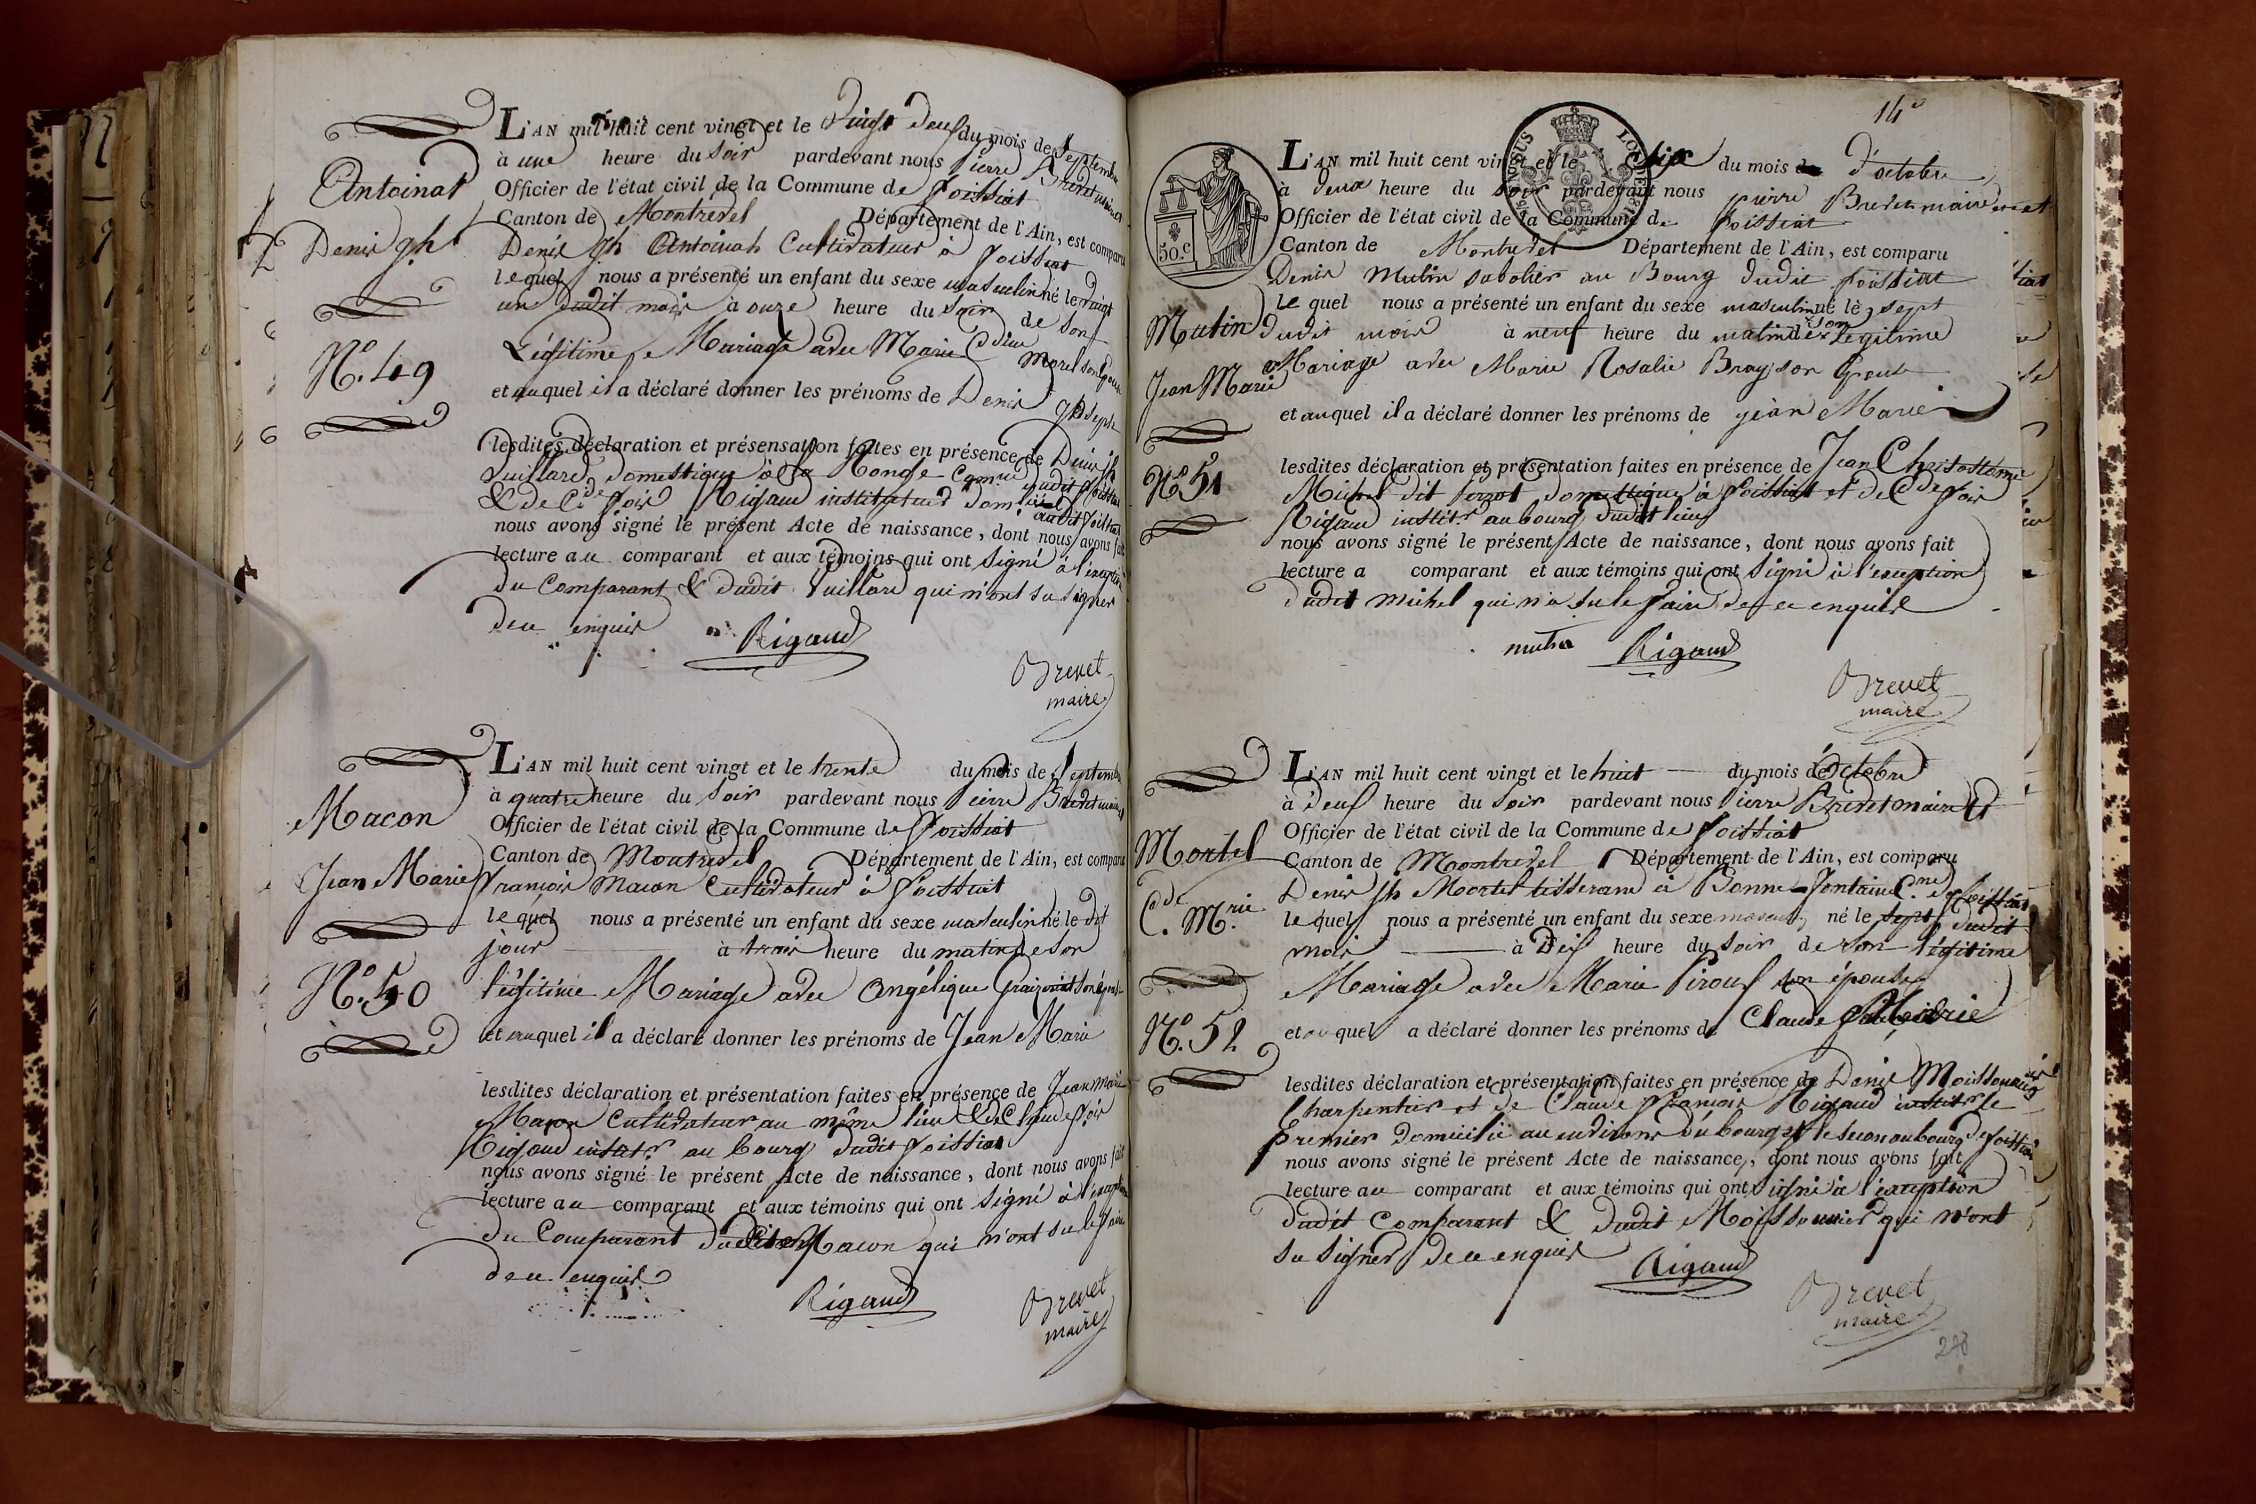 Antoinat
Denis Jh
N.º 49
L'AN mil huit cent vingt et le Vingt deux du mois de Septembre
à une heure du Soir pardevant nous Pierre Brevet maire
Officier de l'état civil de la Commune de Foissiat
Canton de Montrevel Département de l'Ain, est comparu
Denis Jh Antoinat Cultivateur à Foissiat
lequel nous a présenté un enfant du sexe masculin né le Vingt
un dudit mois à onze heure du Soir de Son
Légitime Mariage avec Marie Cdine Morel son Epouse
et auquel il a déclaré donner les prénoms de Denis Joseph
lesdites déclaration et présensation faites en présence de Denis Jh
Vuillard domestique à la Ronge Comne dudit Foissiat
& de Cde Fois Rigaud instituteur domicilié audit Foissiat
nous avons signé le présent Acte de naissance, dont nous avons fait
lecture au comparant et aux témoins qui ont Signé à l'exception
du Comparant & dudit Vuillard qui n'ont su signer
de ce enquis
Rigaud
Brevet
maire
Macon
Jean Marie
N.º 50
L'AN mil huit cent vingt et le trente du mois de Septembre
à quatre heure du Soir pardevant nous Pierre Brevet maire
Officier de l'état civil de la Commune de Foissiat
Canton de Montrevel Département de l'Ain, est comparu
François Macon Cultivateur à Foissiat
lequel nous a présenté un enfant du sexe masculin né le dit
jour à trois heure du matin de son
légitime Mariage avec Angélique son épouse
et auquel il a déclaré donner les prénoms de Jean Marie
lesdites déclaration et présentation faites en présence de Jean Marie
Macon Cultivateur au même lieu & de Claude Fois
Rigaud instr au bourg dudit Foissiat
nous avons signé le présent Acte de naissance, dont nous avons fait
lecture au comparant et aux témoins qui ont Signé à l'exception
du Comparant dudit Macon qui n'ont su le faire
de ce enquis
Rigaud
Brevet
maire
14e
50.c
LOI DE 1816
Mutin
Jean Marie
N.º 51
L'AN mil huit cent vingt et le du mois d'octobre
à deux heure du Soir pardevant nous Pierre Brevet maire et
Officier de l'état civil de la Commune de Foissiat
Canton de Montrevel Département de l'Ain, est comparu
Denis Mutin sabotier au Bourg dudit Foissiat
le quel nous a présenté un enfant du sexe masculin né lè sept
dudit mois à neuf heure du matin de son Légitime
Mariage avec Marie Rosalie Bray son Epouse
et auquel il a déclaré donner les prénoms de jean Marie
lesdites déclaration et présentation faites en présence de Jean Chrisostôme
Michel dit domestique à Foissiat et de Cde Fois
Rigaud instit.r au bourg dudit lieu
nous avons signé le présent Acte de naissance, dont nous avons fait
lecture a comparant et aux témoins qui ont Signé à l'exception
dudit Michel qui n'a su le faire de ce enquis
mutin Rigaud
Brevet
maire
Mortel
Cde. M.rie
N.º 52
L'AN mil huit cent vingt et le huit du mois d'Octobre
à deux heure du Soir pardevant nous Pierre Brevet maire et
Officier de l'état civil de la Commune de Foissiat
Canton de Montrevel Département de l'Ain, est comparu
Denis Jh Mortel tisserand à Bonne fontaine C.ne de Foissiat
lequel nous a présenté un enfant du sexe mascul. né le sept dudit
mois à Dix heure du Soir de son légitime
Mariage avec Marie Piroux son épouse
et au quel a déclaré donner les prénoms de Claude Marie
lesdites déclaration et présentation faites en présence de Denis Moissonnier
Charpentier et de Claude François Rigaud instit.r le
Premier domicilié au environs du bourg et le second au bourg de Foissiat
nous avons signé le présent Acte de naissance, dont nous avons fait
lecture au comparant et aux témoins qui ont Signé à l'exception
dudit Comparant & dudit Moissonnier qui n'ont
su signer de ce enquis
Rigaud
Brevet
maire